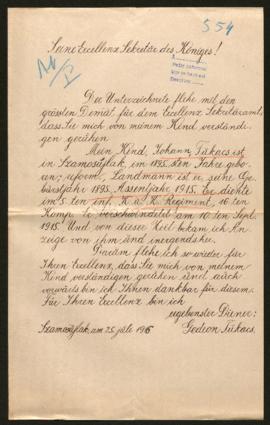 554
Seine Excellenz Sekretär des Königes!
Der Unterzeichnete flehe mit den
grössten Demut, für dem Excellenz Sekretäramt,
dass Sie mich von meinem Kind verständi-
gen geruhen
Mein Kind, Johann Tukacs ist
in Szamosújlak in 1895.sten Jahre gebo-
ren, reform, Landmann ist er, seine Ge-
burtsjahr 1895. Assentjahr 1915. Er diente
im 5.ten inf. K. u. K. Regiment, 10 ten
Komp. Er verschwindete am 10 ten Sept.
1915. Und von dieser Zeit bekam ich An-
zeige von ihm and irgendsher.
Darum flehe ich so wieder für
Ihren Excellenz, dass Sie mich von meinem
Kind verständigen geruhen und auch
vorwärts bin ich Ihnen dankbar für diesem.
Für Ihren Excellenz bin ich
ergebenster Diener:
Szamosújlak, am 25 juli 1916 Gedeon Tukacs.